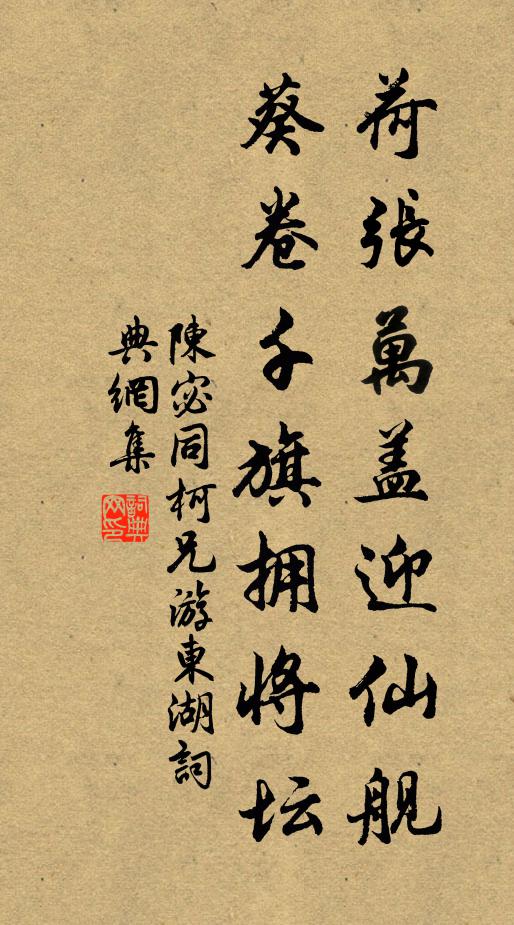 荷張萬盖迎仙舰
葵卷千旗拥将坛
陳宓同柯兄游東湖詞
典網集
詞典网印